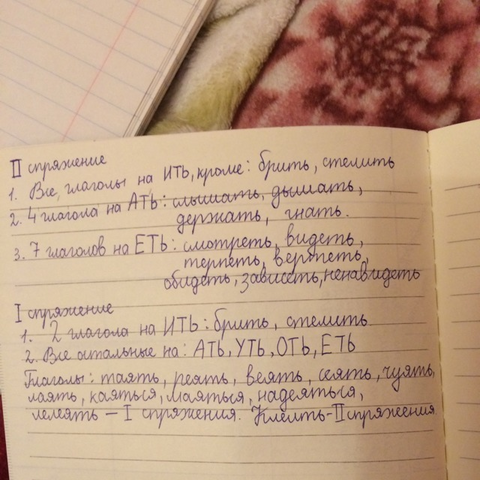 II спряжение
1. Все глаголы на ИТЬ, кроме: брить, стелить
2. 4 глагола на АТЬ: слышать, дышать,
держать, гнать.
3. 7 глаголов на ЕТЬ: смотреть, видеть,
терпеть, вертеть,
обидеть, зависеть, ненавидеть
I спряжение
1. 2 глагола на ИТЬ: брить, стелить
2. Все остальные на: АТЬ, УТЬ, ОТЬ, ЕТЬ
Глаголы: таять, реять, веять, сеять, чуять,
лаять, каяться, маяться, надеяться,
лелеять – I спряжения. Клеить-II спряжения